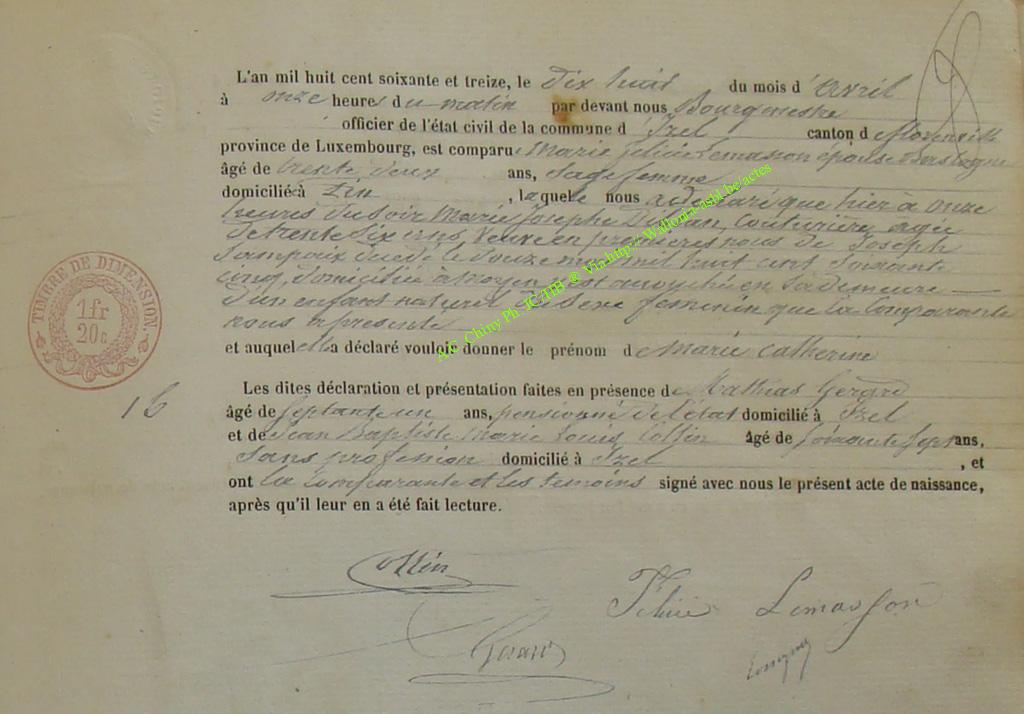 L'an mil huit cent soixante et treize, le Dix huit du mois d'Avril
à onze heures du matin par devant nous Bourgmestre
officier de l'état civil de la commune d'Izel canton de Florenville
province de Luxembourg, est comparue Marie Félicie Lemasson épouse
âgé de trente deux ans, sage femme
domicilié à Izel, laquelle nous a déclaré que hier à onze
heures du soir Marie Josephe couturière âgée
de trente six ans, veuve en premières noces de Joseph
le douze mil huit cent soixante
cinq, domiciliée à Moyen est accouchée en sa demeure
d'un enfant naturel de sexe feminin que la comparante
nous représente
et auquel elle a déclaré vouloir donner le prénom de Marie Catherine
TIMBRE DE DIMENSION.
1 fr
20 c
16
Les dites déclaration et présentation faites en présence de Mathias Gérard
âgé de septante un ans, pensionné de l'état domicilié à Izel
et de Jean Baptiste Marie Louis Collin âgé de soixante sept ans,
sans profession domicilié à Izel, et
ont la comparante et les témoins signé avec nous le présent acte de naissance,
après qu'il leur en a été fait lecture.
Collin
Félicie Lemasson
Gerard
A.C. Chiny Ph. JC/TIB ® Via:http://Wallonia-asbl.be/actes